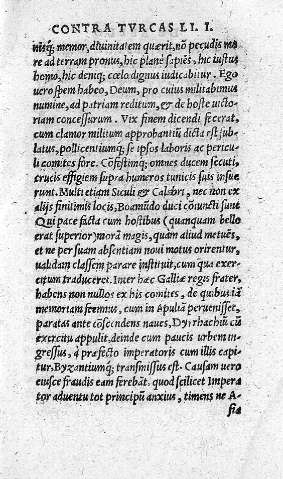 CONTRA TVRCAS LI. I.
nisq; memor, diuinitatem quærit, nō pecudis mo
re ad terram pronus, hic planè sapiēs, hic iustus
homo, hic deniq; cœlo dignus iudicabitur. Ego
uero spem habeo, Deum, pro cuius militabimus
numine, ad patriam reditum, & de hoste uicto-
riam concessurum. Vix finem dicendi fecerat,
cum clamor militum approbantiū dicta est sub
latus, pollicentiumq; se ipsos laboris ac pericu
li comites fore. Cōfestimq; omnes ducem secuti,
crucis effigiem supra humeros tunicis suis insue
runt. Multi etiam Siculi & Calabri, nec non ex
alijs finitimis locis, Boamūdo duci cōiuncti sunt
Qui pace facta cum hostibus (quanquam bello
erat superior) morā magis, quam aliud metuēs,
et ne per suam absentiam noui motus orirentur,
ualidam classem parare instituit, cum qua exer-
citum traduceret. Inter hæc Galliæ regis frater,
habens non nullos ex his comites, de quibus iā
memoriam fecimus, cum in Apuliā peruenisset,
paratas ante cōscendens naues, Dyrrhachiū cū
exercitu appulit, deinde cum paucis urbem in-
gressus, à præfecto imperatoris cum illis capi-
tur, Byzantiumq; transmissus est. Causam uero
eiusce fraudis eam ferebāt. quod scilicet Impera
tor aduentu tot principū anxius, timens ne A-
sia